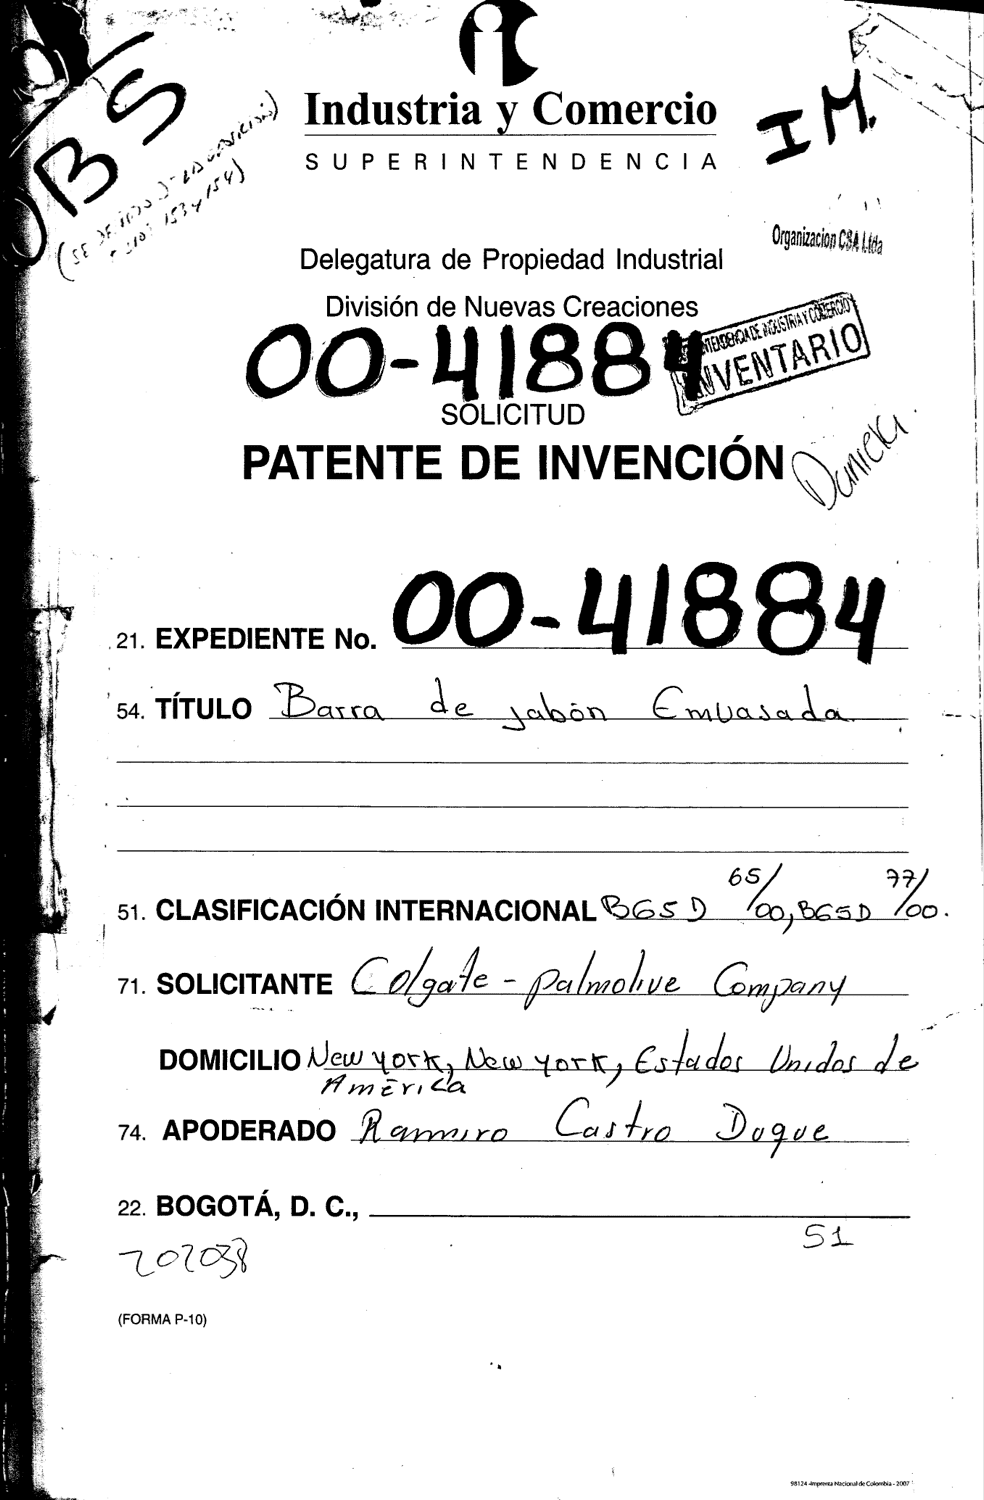 OBS
Industria y Comercio
SUPERINTENDENCIA
I M.
Organizacion CSA Ltda
Delegatura de Propiedad Industrial
División de Nuevas Creaciones
00-41884
INDUSTRIA Y COMERCIO
INVENTARIO
SOLICITUD
PATENTE DE INVENCIÓN
Daniela.
21. EXPEDIENTE No. 00-41884
54. TÍTULO Barra de jabón Envasada
51. CLASIFICACIÓN INTERNACIONAL B65D 65/00, B65D 77/00.
71. SOLICITANTE Colgate-Palmolive Company
DOMICILIO New york, New york, Estados Unidos de
América
74. APODERADO Ramiro Castro Duque
22. BOGOTÁ, D. C.,
51
202038
(FORMA P-10)
98124 -Imprenta Nacional de Colombia - 2007